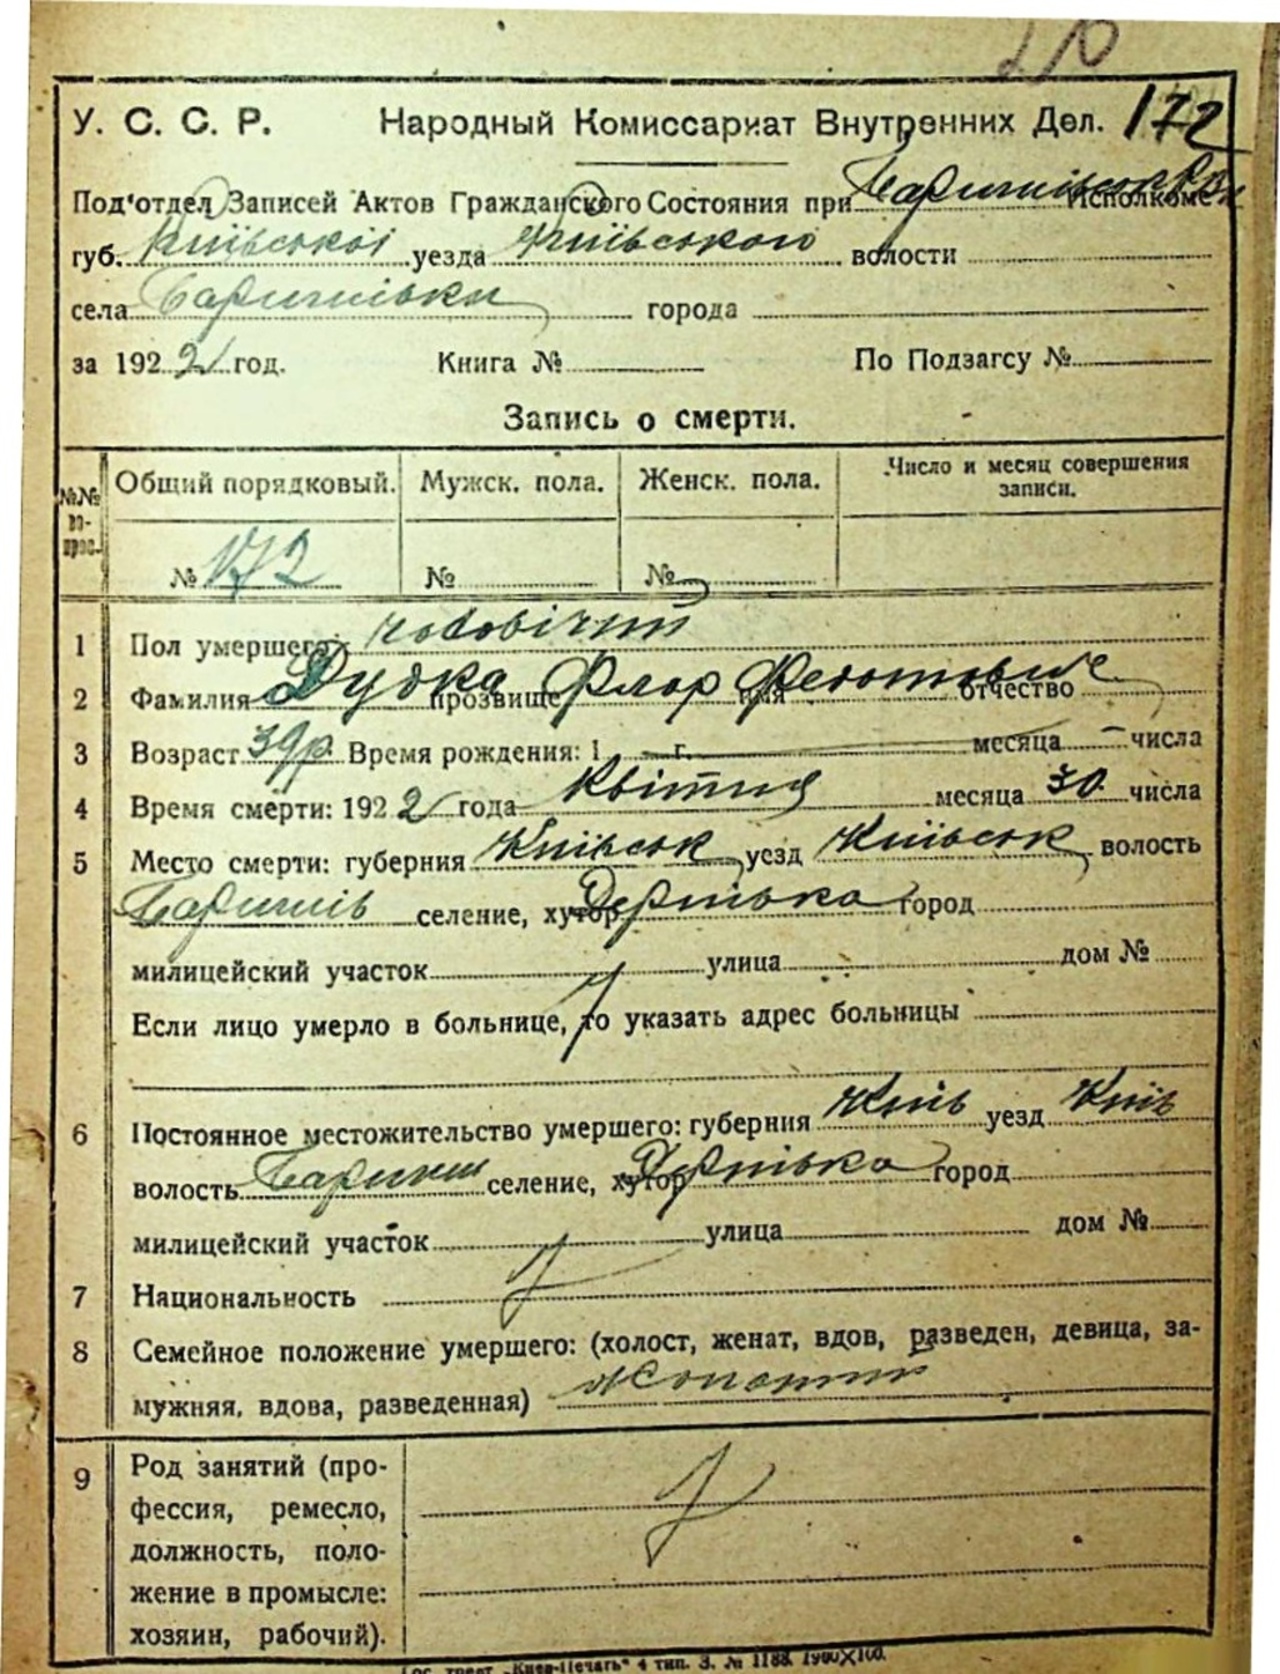 210
У. С. С. Р. Народный Комиссариат Внутренних Дел. 172
Под'отдел Записей Актов Гражданского Состояния при Исполкоме
губ. Київської уезда Київського волости
села Баришівки города
за 1922 год. Книга № По Подзагсу №
Запись о смерти.
№№ вопрос. Общий порядковый. Мужск. пола. Женск. пола. Число и месяц совершения записи.
№ 172 № №
1 Пол умершего: чоловічий
2 Фамилия Дудка прозвище Флор имя Федотович отчество
3 Возраст 39 р. Время рождения: 1 г. месяца числа
4 Время смерти: 1922 года Квітня месяца 30 числа
5 Место смерти: губерния Київськ уезд Київськ волость
Баришів селение, хутор Дернівка город
милицейский участок улица дом №
Если лицо умерло в больнице, то указать адрес больницы
6 Постоянное местожительство умершего: губерния Київ уезд Київ
волость Бариш селение, хутор Дернівка город
милицейский участок улица дом №
7 Национальность
8 Семейное положение умершего: (холост, женат, вдов, разведен, девица, за-
мужняя, вдова, разведенная) жонатий
9 Род занятий (про-
фессия, ремесло,
должность, поло-
жение в промысле:
хозяин, рабочий).
Гос. трест „Киев-Печать“ 4 тип. З. № 1188. 1900×100.